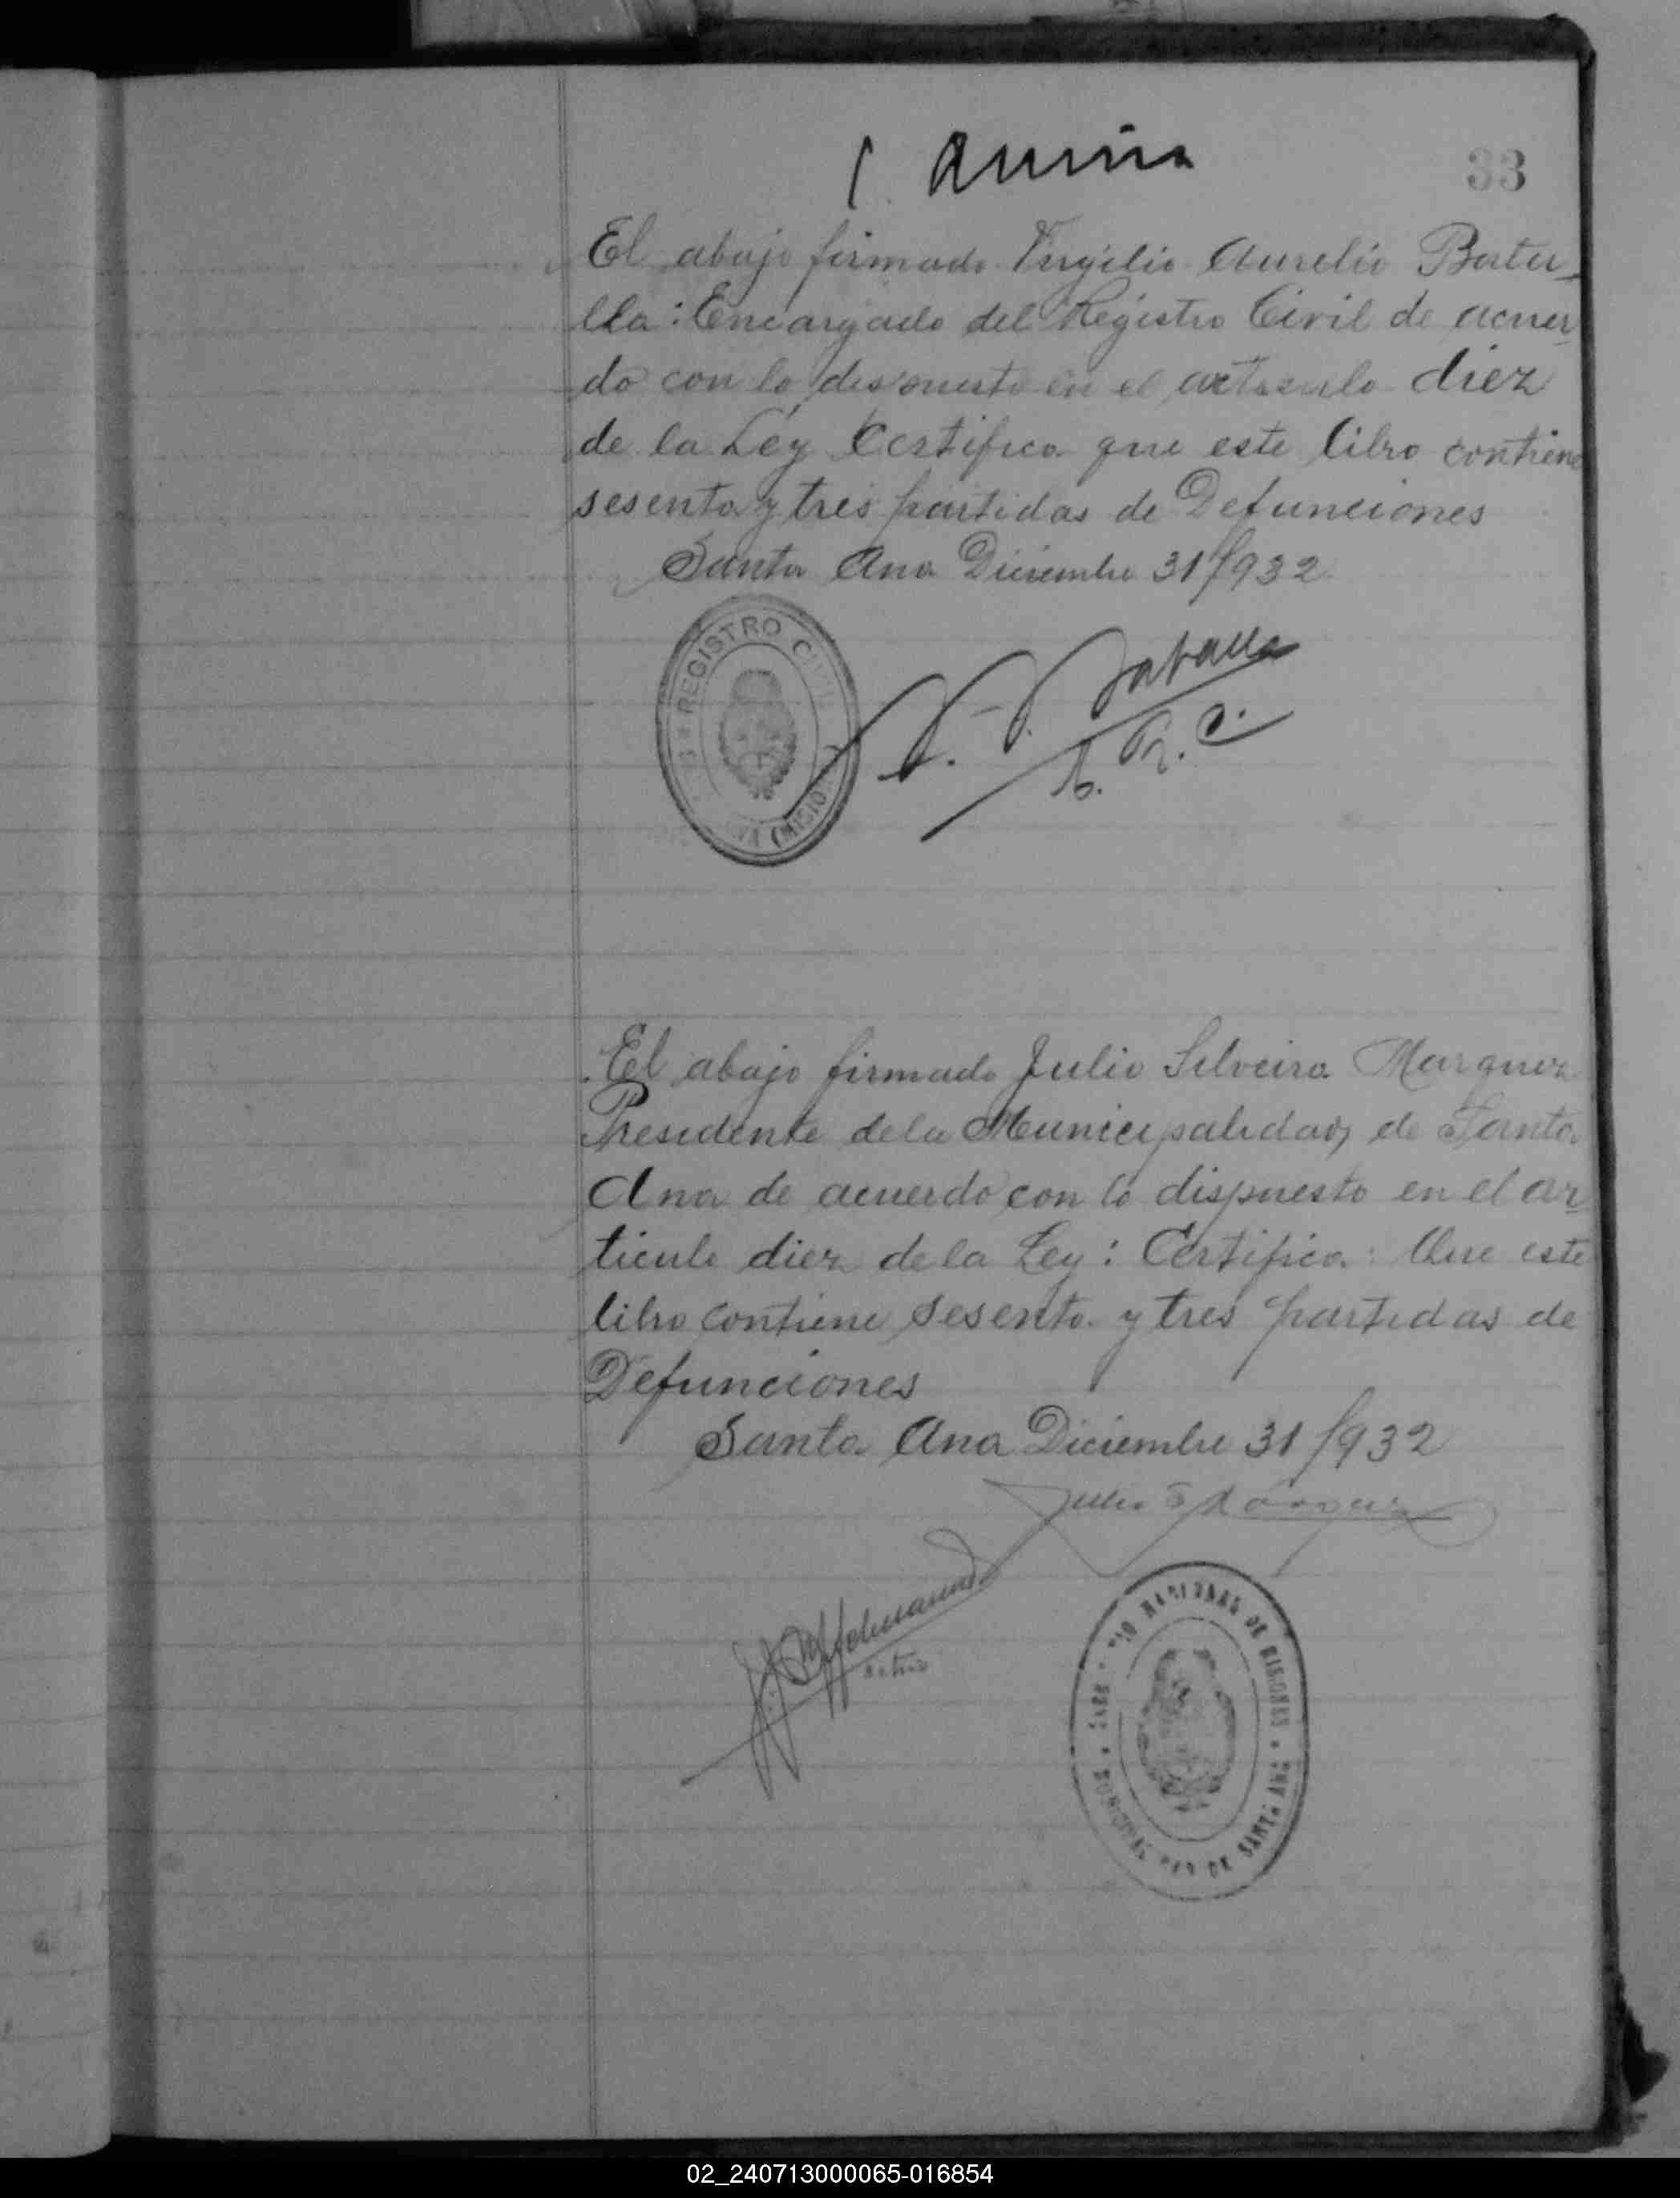 33
El abajo firmado Virgilio Aurelio Bata-
lla: Encargado del Registro Civil de acuer-
do con lo dispuesto en el artículo diez
de la Ley Certifico que este libro contiene
sesenta y tres partidas de Defunciones
Santa Ana Diciembre 31/932
REGISTRO CIVIL
Batalla
E. R. C.
El abajo firmado Julio Silveira Marquez
Presidente de la Municipalidad de Santa
Ana de acuerdo con lo dispuesto en el ar-
ticulo diez de la Ley: Certifico: Que este
libro contiene sesenta y tres partidas de
Defunciones
Santa Ana Diciembre 31/932
Julio S Marquez
DE MISIONES
DE SANTA ANA
02_240713000065-016854